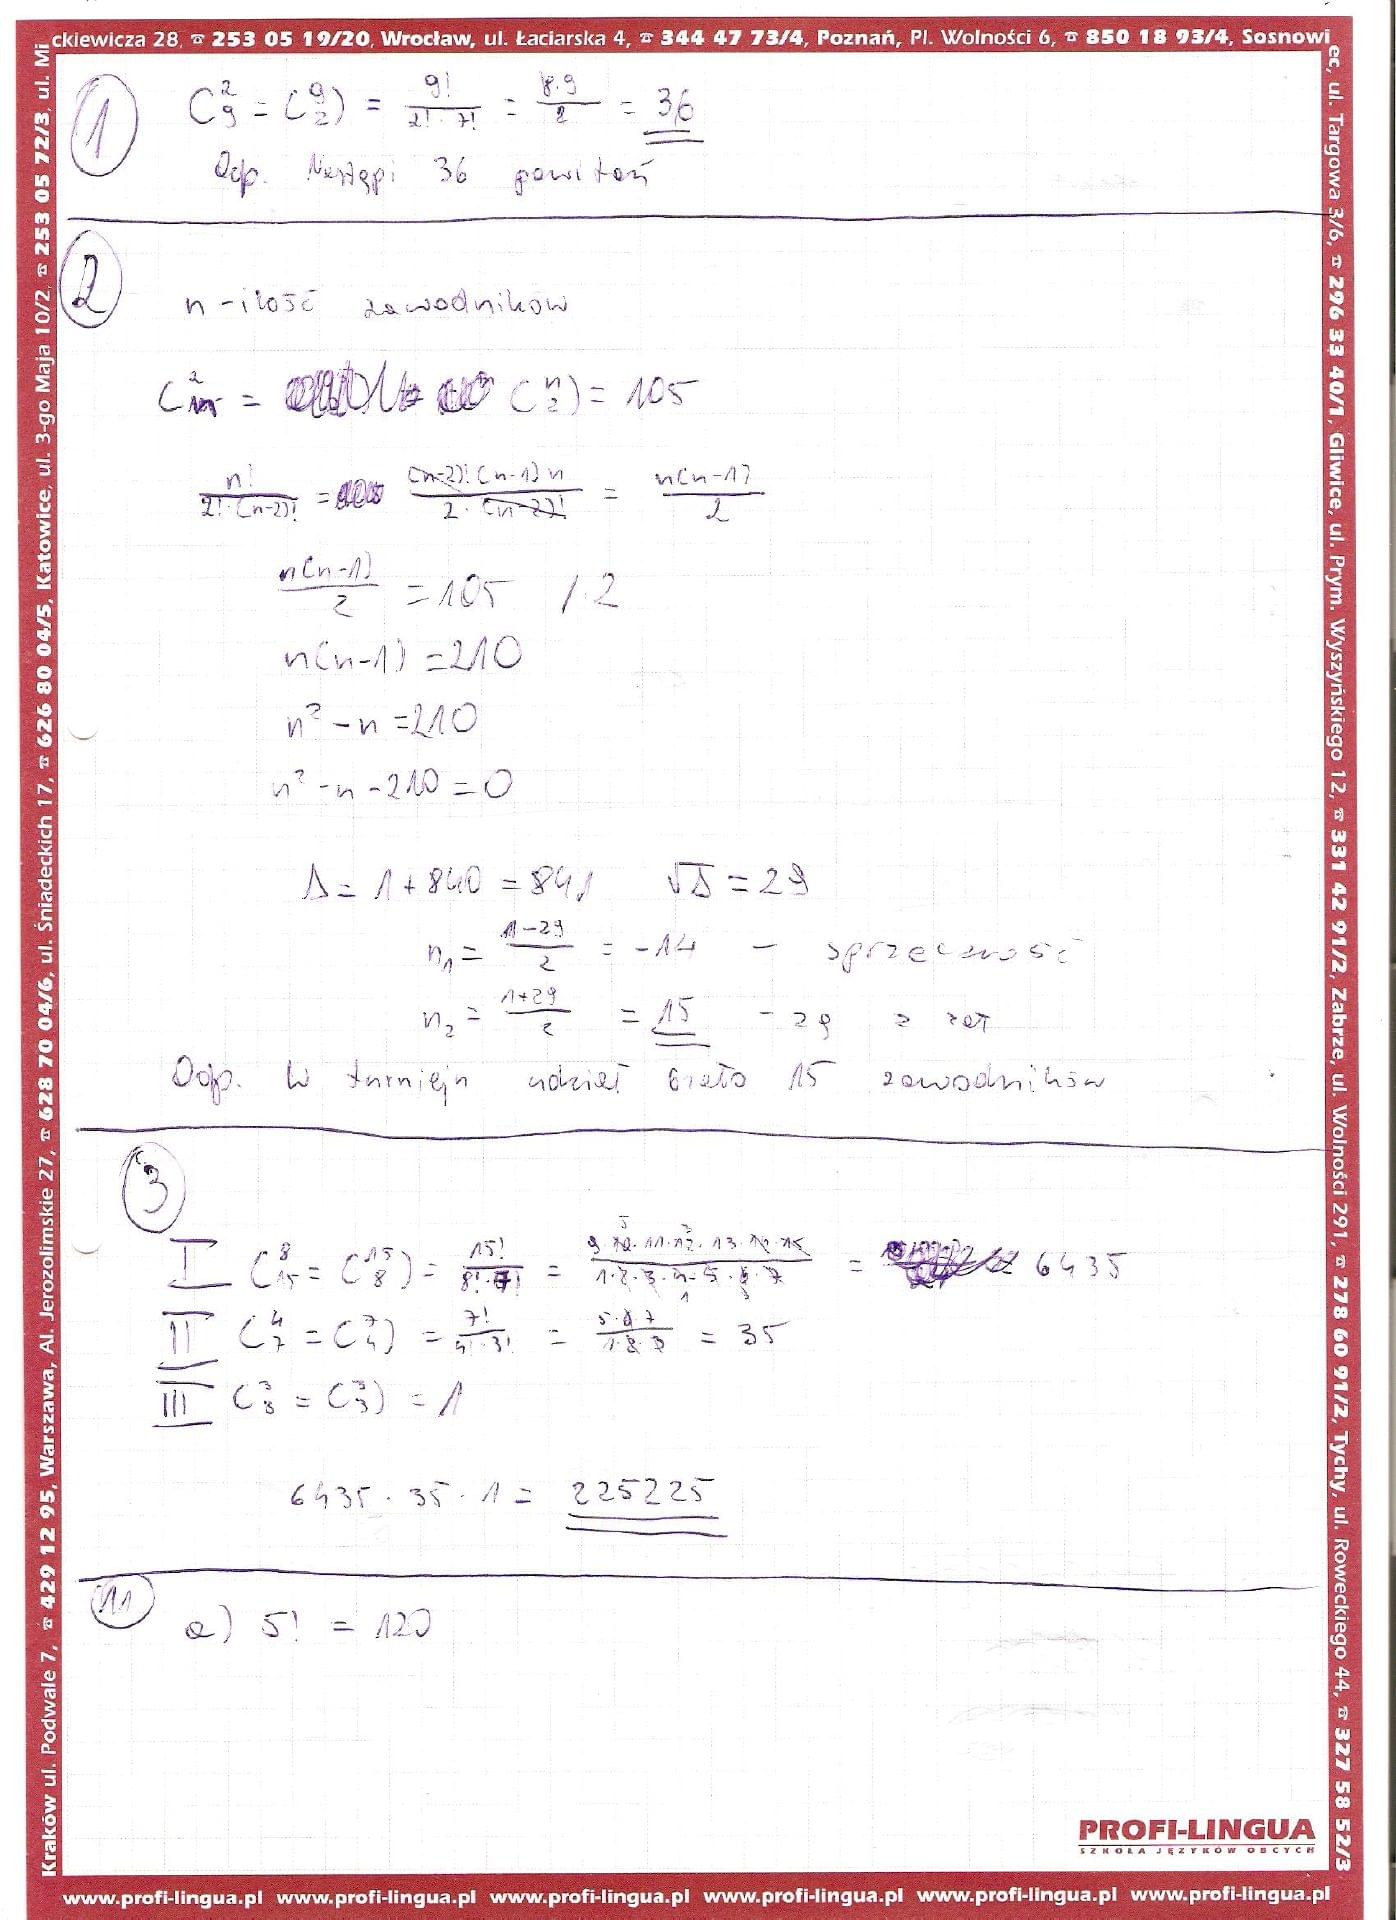 ckiewicza 28, ☎ 253 05 19/20, Wrocław, ul. Łaciarska 4, ☎ 344 47 73/4, Poznań, Pl. Wolności 6, ☎ 850 18 93/4, Sosnowi
ec, ul. Targowa 3/6, ☎ 296 33 40/1, Gliwice, ul. Prym. Wyszyńskiego 12, ☎ 331 42 91/2, Zabrze, ul. Wolności 291, ☎ 278 60 91/2, Tychy, ul. Roweckiego 44, ☎ 327 58 52/3
Kraków ul. Podwale 7, ☎ 429 12 95, Warszawa, Al. Jerozolimskie 27, ☎ 628 70 04/6, ul. Śniadeckich 17, ☎ 626 80 04/5, Katowice, ul. 3-go Maja 10/2, ☎ 253 05 72/3, ul. Mi
1
C₉² = (9 2) = 9!/(2! · 7!) = 8·9/2 = 36
Odp. Nastąpi 36 powitań
2
n - ilość zawodników
(n 2) = 105
n!/(2!·(n-2)!) = (n-2)!(n-1)n/(2·(n-2)!) = n(n-1)/2
n(n-1)/2 = 105 /·2
n(n-1) = 210
n² - n = 210
n² - n - 210 = 0
Δ = 1 + 840 = 841 √Δ = 29
n₁ = (1-29)/2 = -14 - sprzeczność
n₂ = (1+29)/2 = 15 - zg z zał
Odp. W turnieju udział brało 15 zawodników
3
I C₁₅⁸ = (15 8) = 15!/(8!·7!) = 9·10·11·12·13·14·15/(1·2·3·4·5·6·7) = 6435
II C₇⁴ = (7 4) = 7!/(4!·3!) = 5·6·7/(1·2·3) = 35
III C₃³ = (3 3) = 1
6435 · 35 · 1 = 225225
11
a) 5! = 120
PROFI-LINGUA
SZKOŁA JĘZYKÓW OBCYCH
www.profi-lingua.pl www.profi-lingua.pl www.profi-lingua.pl www.profi-lingua.pl www.profi-lingua.pl www.profi-lingua.pl